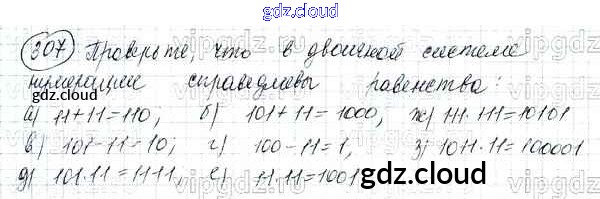 gdz.cloud
307 Проверьте, что в двоичной системе
нумерации справедливы равенства:
gdz.cloud
а) 11+11=110; б) 101+11=1000; ж) 111·111=10101
в) 101-11=10; г) 100-11=1; з) 1011·11=100001
д) 101·11=1111, е) 11·11=1001
gdz.cloud